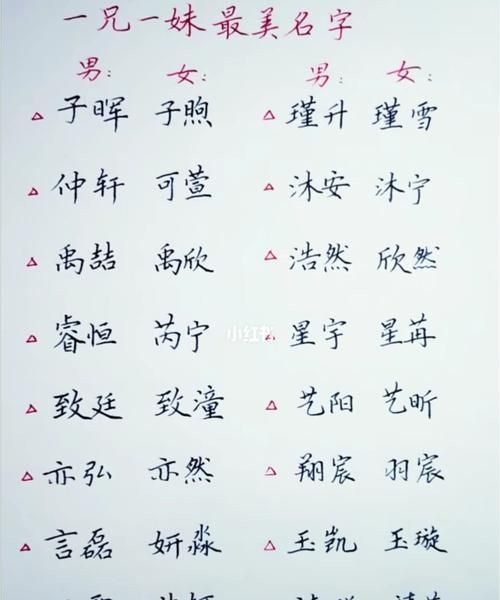 一兄一妹最美名字
男: 女: 男: 女:
子晖 子煦 瑾升 瑾雪
仲轩 可萱 沐安 沐宁
禹喆 禹欣 浩然 欣然
睿恒 芮宁 星宇 星苒
小红书
致廷 致潼 艺阳 艺昕
亦弘 亦然 翔宸 羽宸
言磊 妍淼 玉凯 玉璇